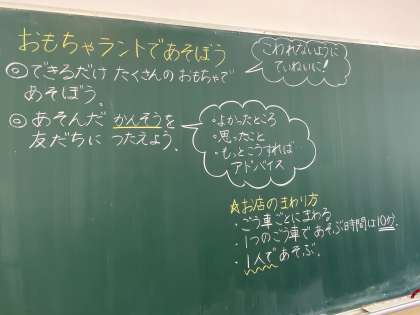 おもちゃランドであそぼう
◎できるだけ たくさんの おもちゃで
あそぼう。
こわれないように
ていねいに!
◎あそんだ かんそうを
友だちに つたえよう。
・よかったところ
・思ったこと
・もっとこうすれば
アドバイス
☆お店のまわり方
・ごう車ごとにまわる
・1つのごう車であそぶ時間は10分。
・1人であそぶ。